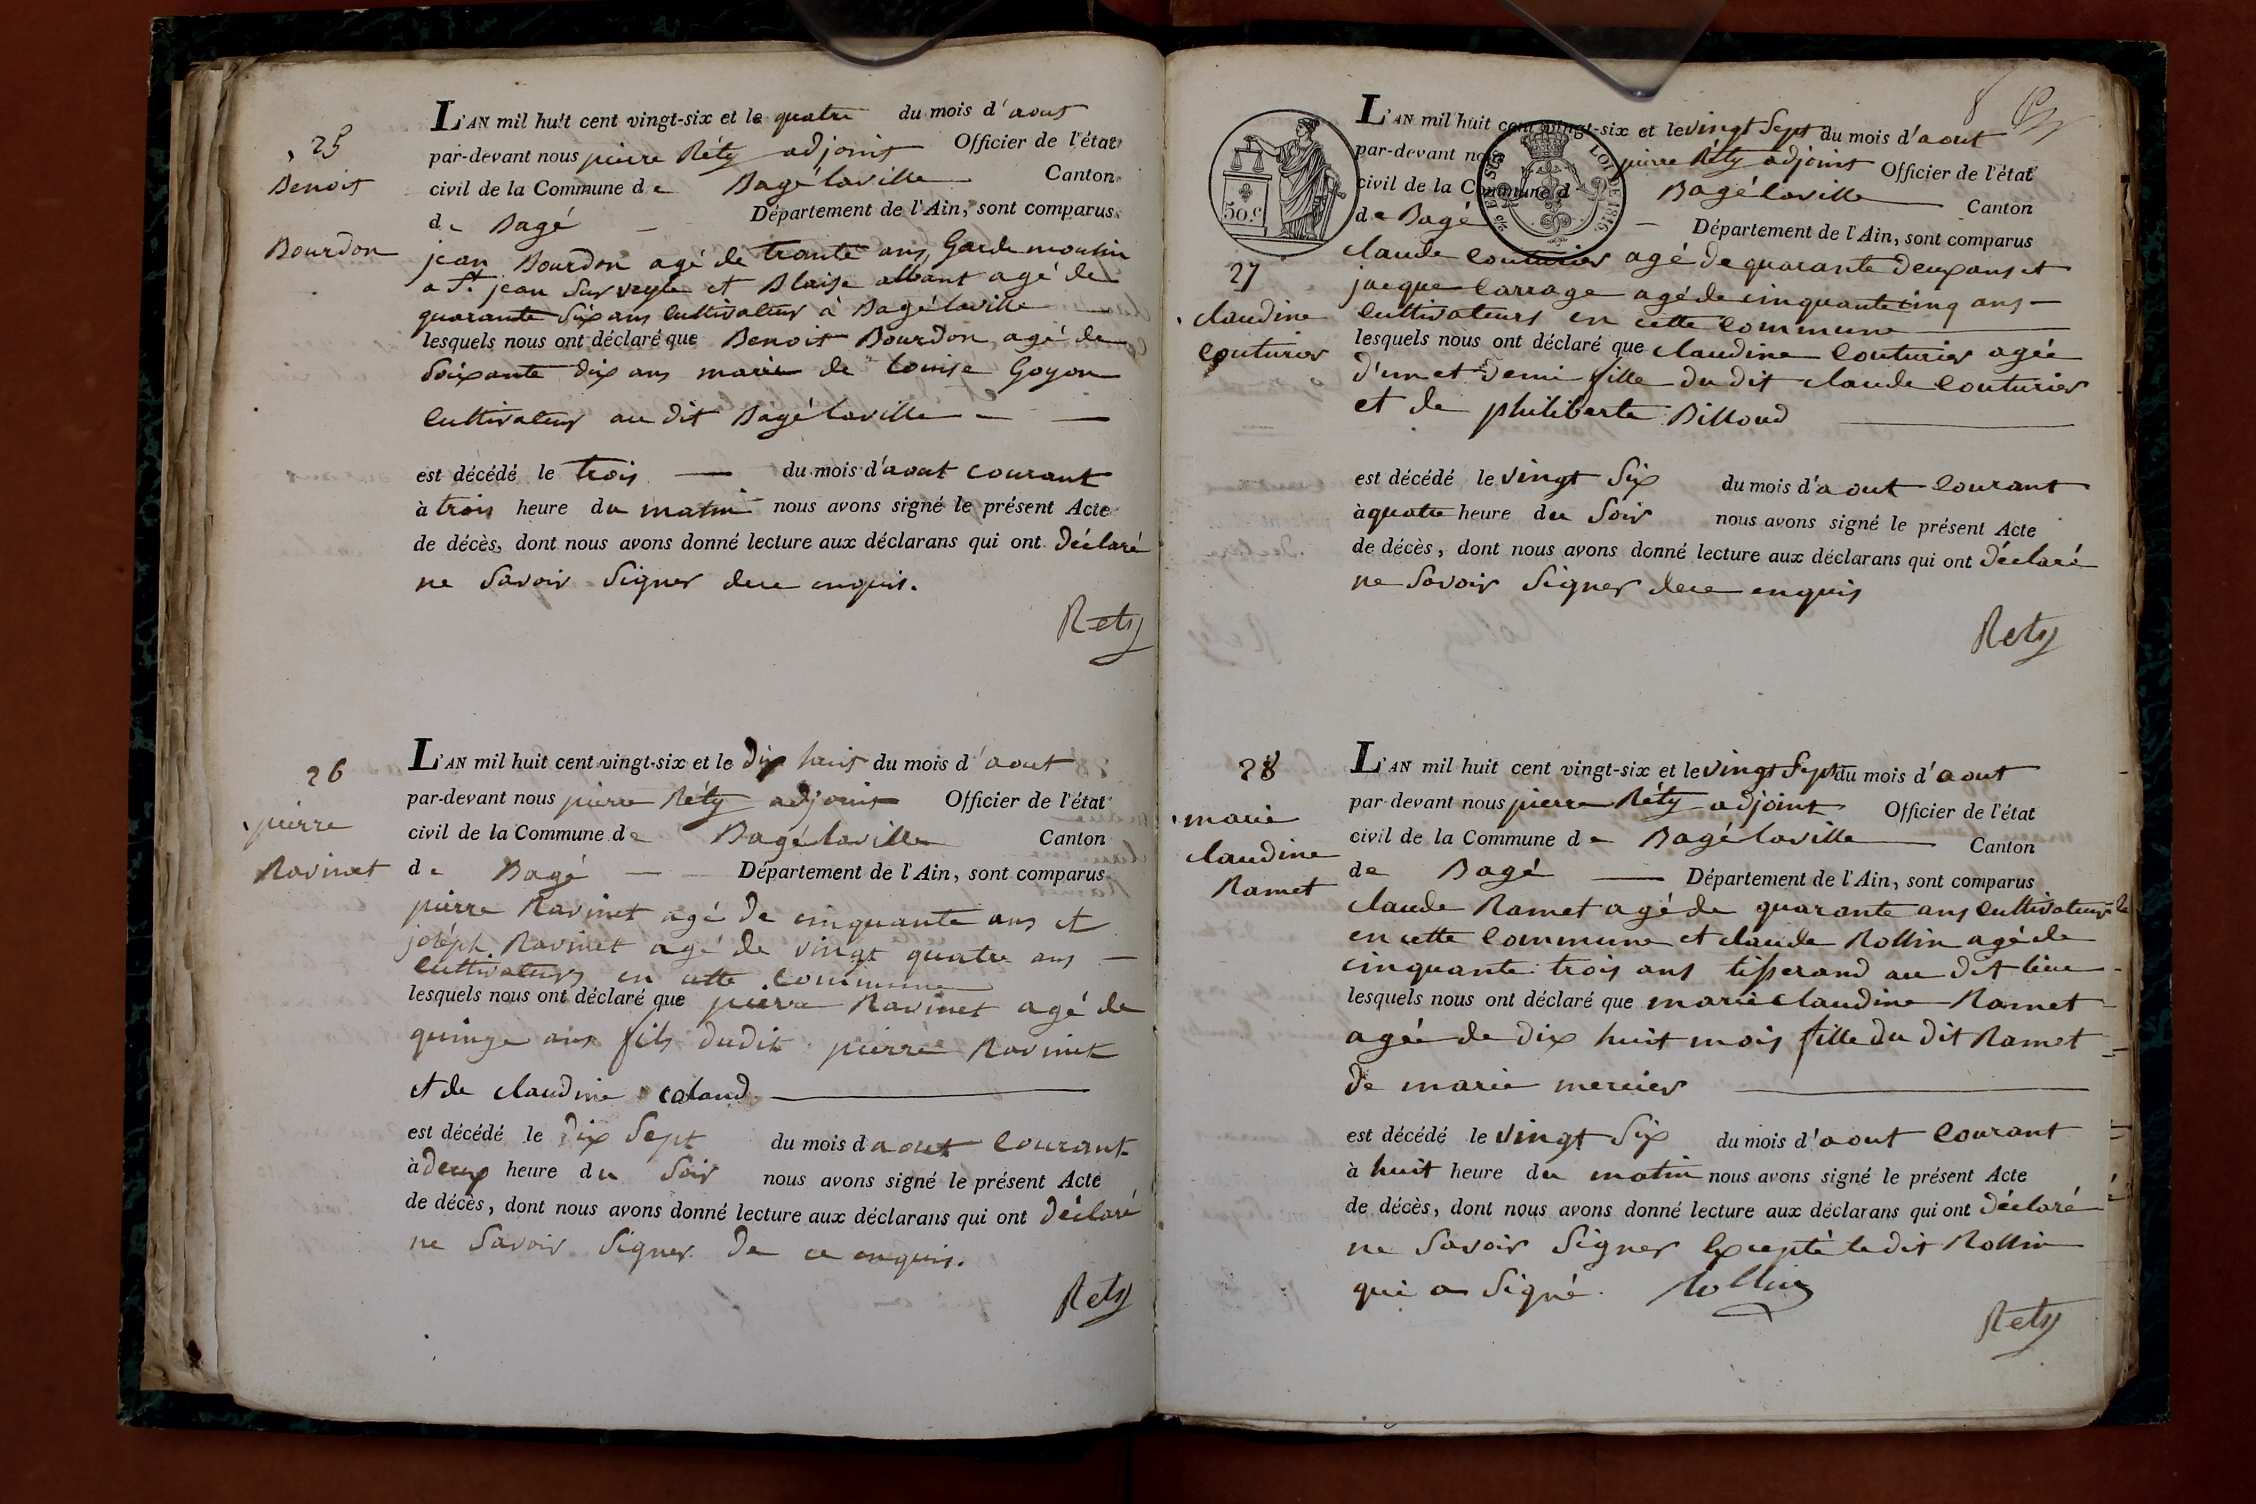 25
Benoit
Bourdon
L'AN mil huit cent vingt-six et le quatre du mois d'aout
par-devant nous pierre Réty adjoint Officier de l'état
civil de la Commune de Bagé laville Canton
de Bagé — Département de l'Ain, sont comparus
jean Bourdon agé de trante ans, Garde moulin
a St. jean sur veyle et Blaise albant agé de
quarante six ans Cultivateur à Bagé laville
lesquels nous ont déclaré que Benoit Bourdon agé de
soixante dix ans marié de Louise Goyon
Cultivateur au dit Bagé laville — —
est décédé le trois — du mois d'aout courant
à trois heure du matin nous avons signé le présent Acte
de décès, dont nous avons donné lecture aux déclarans qui ont déclaré
ne savoir signer de ce enquis.
Rety
26
pierre
Ravinet
L'AN mil huit cent vingt-six et le dix huit du mois d'aout
par-devant nous pierre Réty adjoint Officier de l'état
civil de la Commune de Bagé laville Canton
de Bagé — — Département de l'Ain, sont comparus
pierre Ravinet agé de cinquante ans et
joséph Ravinet agé de vingt quatre ans —
Cultivateurs en cette Commune
lesquels nous ont déclaré que pierre Ravinet agé de
quinze ans fils dudit pierre Ravinet
et de claudine caland —
est décédé le dix sept du mois d aout Courant
à deux heure du soir nous avons signé le présent Acte
de décès, dont nous avons donné lecture aux déclarans qui ont déclaré
ne savoir signer de ce enquis.
Rety
8
50 c.
LOI DE 1816.
27
claudine
couturier
L'AN mil huit cent vingt-six et le vingt sept du mois d'aout
par-devant nous pierre Réty adjoint Officier de l'état
civil de la Commune d Bagé laville — Canton
de Bagé — Département de l'Ain, sont comparus
claude couturier agé de quarante deux ans et
jacque Carrage agé de cinquante cinq ans —
Cultivateurs en cette Commune —
lesquels nous ont déclaré que claudine Couturier agée
d'un et demi fille du dit claude Couturier
et de philiberte Billoud —
est décédé le vingt six du mois d'aout Courant
à quatre heure du soir nous avons signé le présent Acte
de décès, dont nous avons donné lecture aux déclarans qui ont déclaré
ne savoir signer de ce enquis
Rety
28
marie
claudine
Ramet
L'AN mil huit cent vingt-six et le vingt sept du mois d'aout
par-devant nous pierre Réty adjoint Officier de l'état
civil de la Commune de Bagé laville — Canton
de Bagé — Département de l'Ain, sont comparus
claude Ramet agé de quarante ans Cultivateur
en cette Commune et claude Rollin agé de
cinquante trois ans tisserand au dit lieu
lesquels nous ont déclaré que marie claudine Ramet
agée de dix huit mois fille du dit Ramet
de marie mercier —
est décédé le vingt six du mois d'aout Courant
à huit heure du matin nous avons signé le présent Acte
de décès, dont nous avons donné lecture aux déclarans qui ont déclaré
ne savoir signer Excepté ledit Rollin
qui a signé. Rollin
Rety